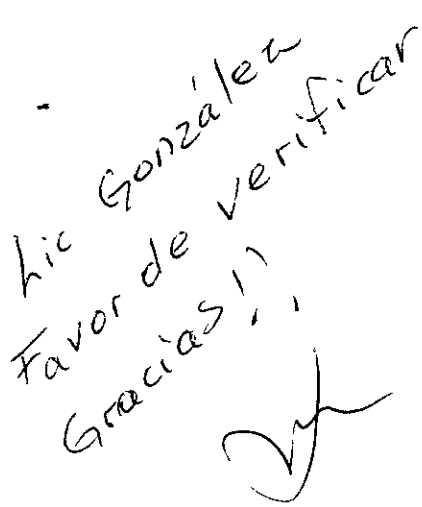 Lic González
Favor de verificar
Gracias!!